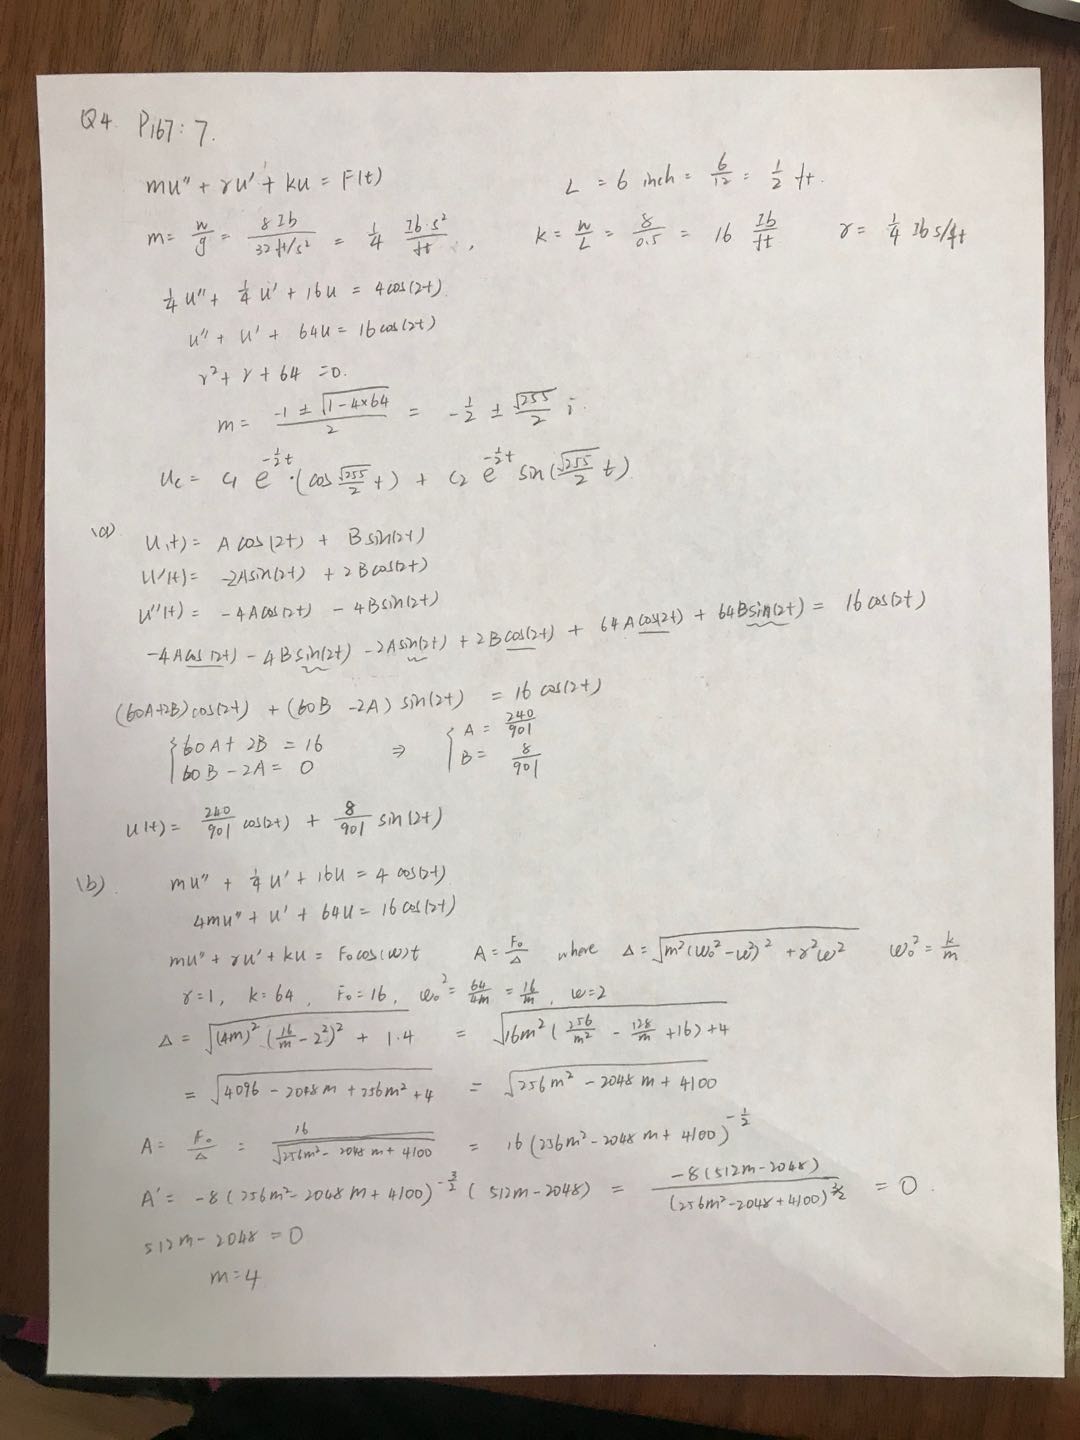 Q4. P167: 7.
mu'' + γu' + ku = F(t)
L = 6 inch = 6/12 = 1/2 ft.
m = w/g = 8 Ib / 32 ft/s² = 1/4 Ib·s²/ft , k = w/L = 8/0.5 = 16 Ib/ft γ = 1/4 Ib s/ft
1/4 u'' + 1/4 u' + 16u = 4cos(2t)
u'' + u' + 64u = 16cos(2t)
r² + r + 64 = 0.
m = (-1 ± √(1-4×64))/2 = -1/2 ± √255/2 i.
uc = c1 e^(-1/2 t) · (cos √255/2 t) + c2 e^(-1/2 t) sin(√255/2 t)
(a) U(t) = A cos(2t) + B sin(2t)
U'(t) = -2A sin(2t) + 2B cos(2t)
U''(t) = -4A cos(2t) - 4B sin(2t)
-4A cos(2t) - 4B sin(2t) - 2A sin(2t) + 2B cos(2t) + 64A cos(2t) + 64B sin(2t) = 16 cos(2t)
(60A+2B) cos(2t) + (60B - 2A) sin(2t) = 16 cos(2t)
{ 60A + 2B = 16 ⇒ { A = 240/901
{ 60B - 2A = 0 { B = 8/901
u(t) = 240/901 cos(2t) + 8/901 sin(2t)
(b). mu'' + 1/4 u' + 16u = 4 cos(2t)
4mu'' + u' + 64u = 16 cos(2t)
mu'' + γu' + ku = F₀cos(w)t A = F₀/Δ where Δ = √(m²(w₀²-w²)² + γ²w²) w₀² = k/m
γ = 1, k = 64, F₀ = 16, w₀² = 64/4m = 16/m , w = 2
Δ = √((4m)² (16/m - 2²)² + 1·4) = √(16m² (256/m² - 128/m + 16) + 4)
= √(4096 - 2048m + 256m² + 4) = √(256m² - 2048m + 4100)
A = F₀/Δ = 16/√(256m² - 2048m + 4100) = 16(256m² - 2048m + 4100)^(-1/2)
A' = -8(256m² - 2048m + 4100)^(-3/2) (512m - 2048) = -8(512m-2048) / (256m² - 2048 + 4100)^(3/2) = 0.
512m - 2048 = 0
m = 4